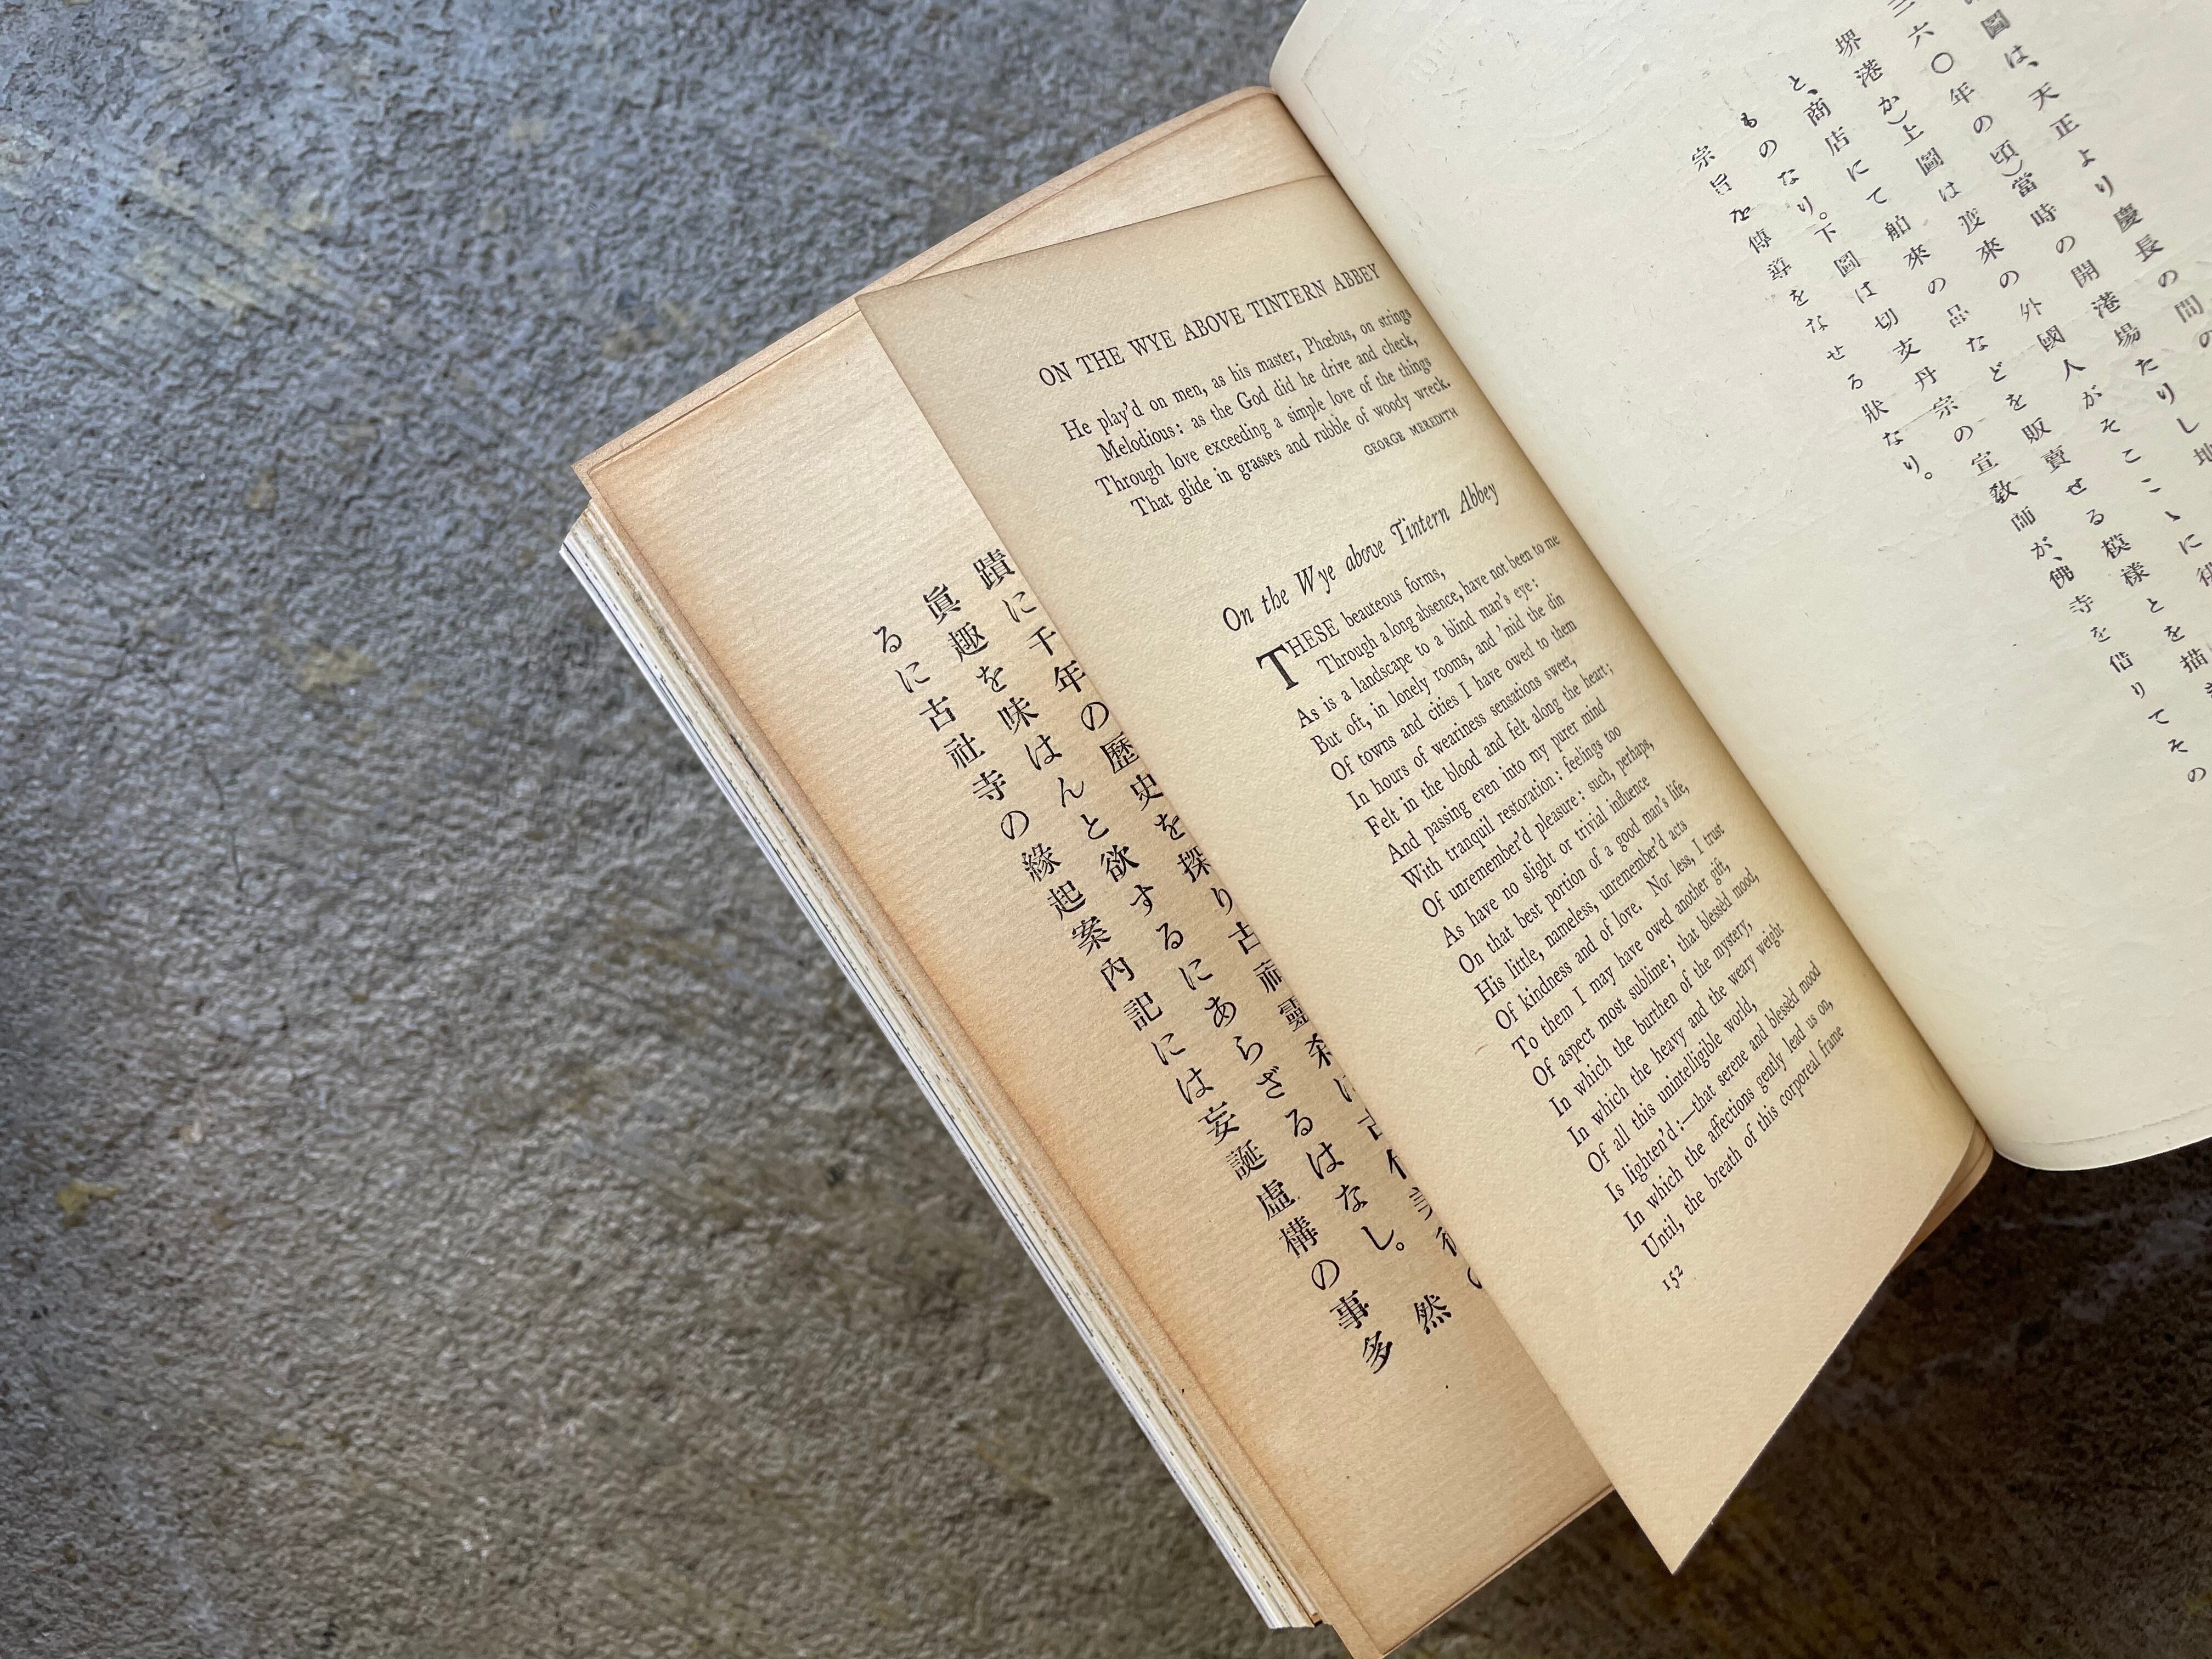 ON THE WYE ABOVE TINTERN ABBEY
He play'd on men, as his master, Phœbus, on strings
Melodious: as the God did he drive and check,
Through love exceeding a simple love of the things
That glide in grasses and rubble of woody wreck.
GEORGE MEREDITH
On the Wye above Tintern Abbey
THESE beauteous forms,
Through a long absence, have not been to me
As is a landscape to a blind man's eye:
But oft, in lonely rooms, and 'mid the din
Of towns and cities I have owed to them
In hours of weariness sensations sweet,
Felt in the blood and felt along the heart;
And passing even into my purer mind
With tranquil restoration: feelings too
Of unremember'd pleasure: such, perhaps,
As have no slight or trivial influence
On that best portion of a good man's life,
His little, nameless, unremember'd acts
Of kindness and of love. Nor less, I trust
To them I may have owed another gift,
Of aspect most sublime; that blessèd mood,
In which the burthen of the mystery,
In which the heavy and the weary weight
Of all this unintelligible world,
Is lighten'd:—that serene and blessèd mood
In which the affections gently lead us on,
Until, the breath of this corporeal frame
152
蹟に千年の歴史を探り古祠靈刹に古代美術の
眞趣を味はんと欲するにあらざるはなし。然
るに古社寺の緣起案內記には妄誕虛構の事多
圖は、天正より慶長の間の
三六〇年の頃)當時の開港場たりし地
堺港か)上圖は渡來の外國人がそここゝに徘
と、商店にて舶來の品などを販賣せる模樣とを描
ものなり。下圖は切支丹宗の宣敎師が、佛寺を借りてその
宗旨を傳導をなせる狀なり。